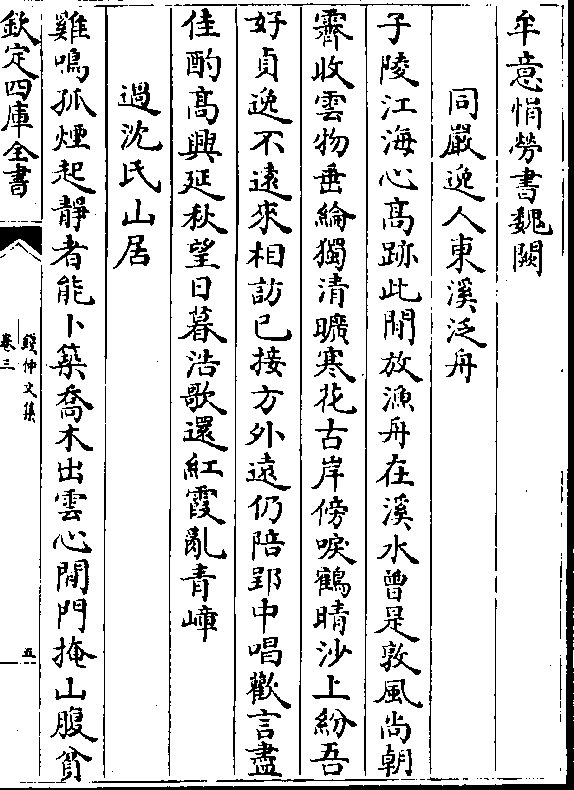 牟意悁勞書魏闕
同嚴逸人東溪泛舟
子陵江海心髙跡此閒放漁舟在溪水曾是敦風尚朝
霽收雲物垂綸獨清曠寒花古岸傍唳鶴晴沙上紛吾
好貞逸不遠來相訪已接方外遠仍陪郢中唱歡言盡
佳酌髙興延秋望日暮浩歌還紅霞亂青嶂
過沈氏山居
雞鳴孤煙起靜者能卜築喬木出雲心閒門掩山腹貧
欽定四庫全書
錢仲文集
卷三
五